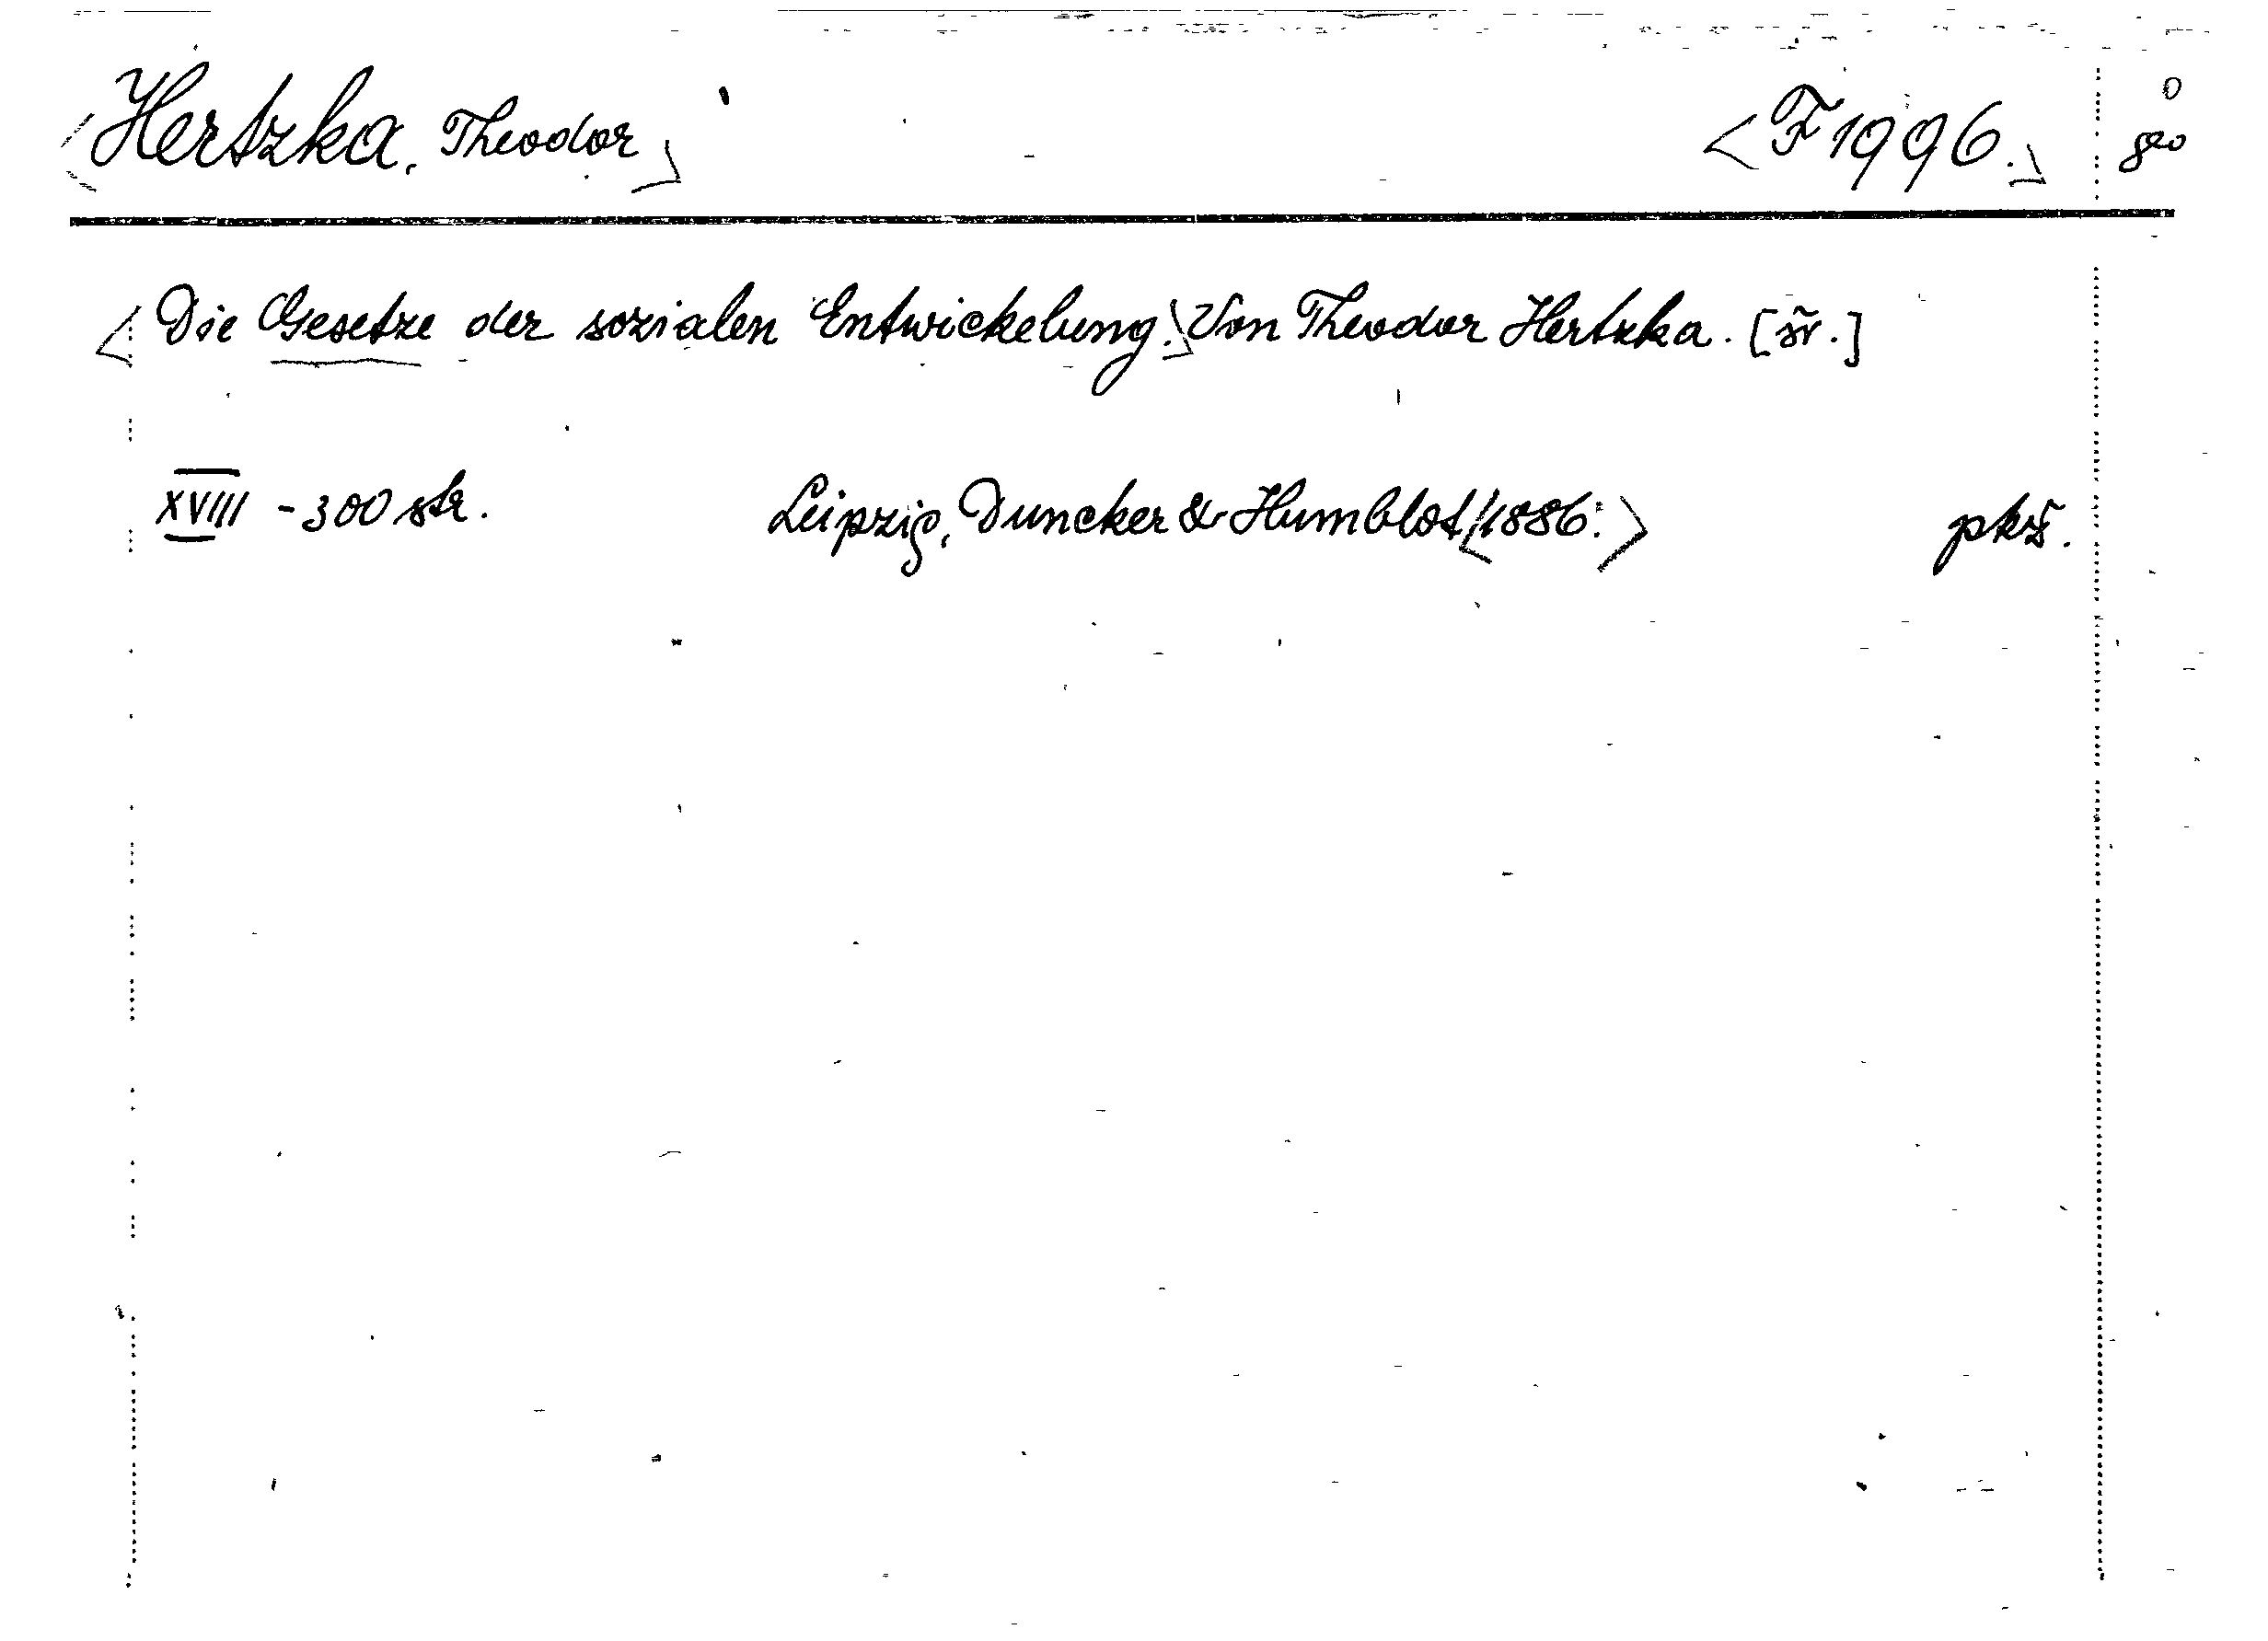 <Hertzka, Theodor> <F 1996.> 8o
<Die Gesetze der sozialen Entwickelung.> Von Theodor Hertzka. [šv.]
XVIII - 300 str. Leipzig, Duncker & Humblot, <1886.> pkž.